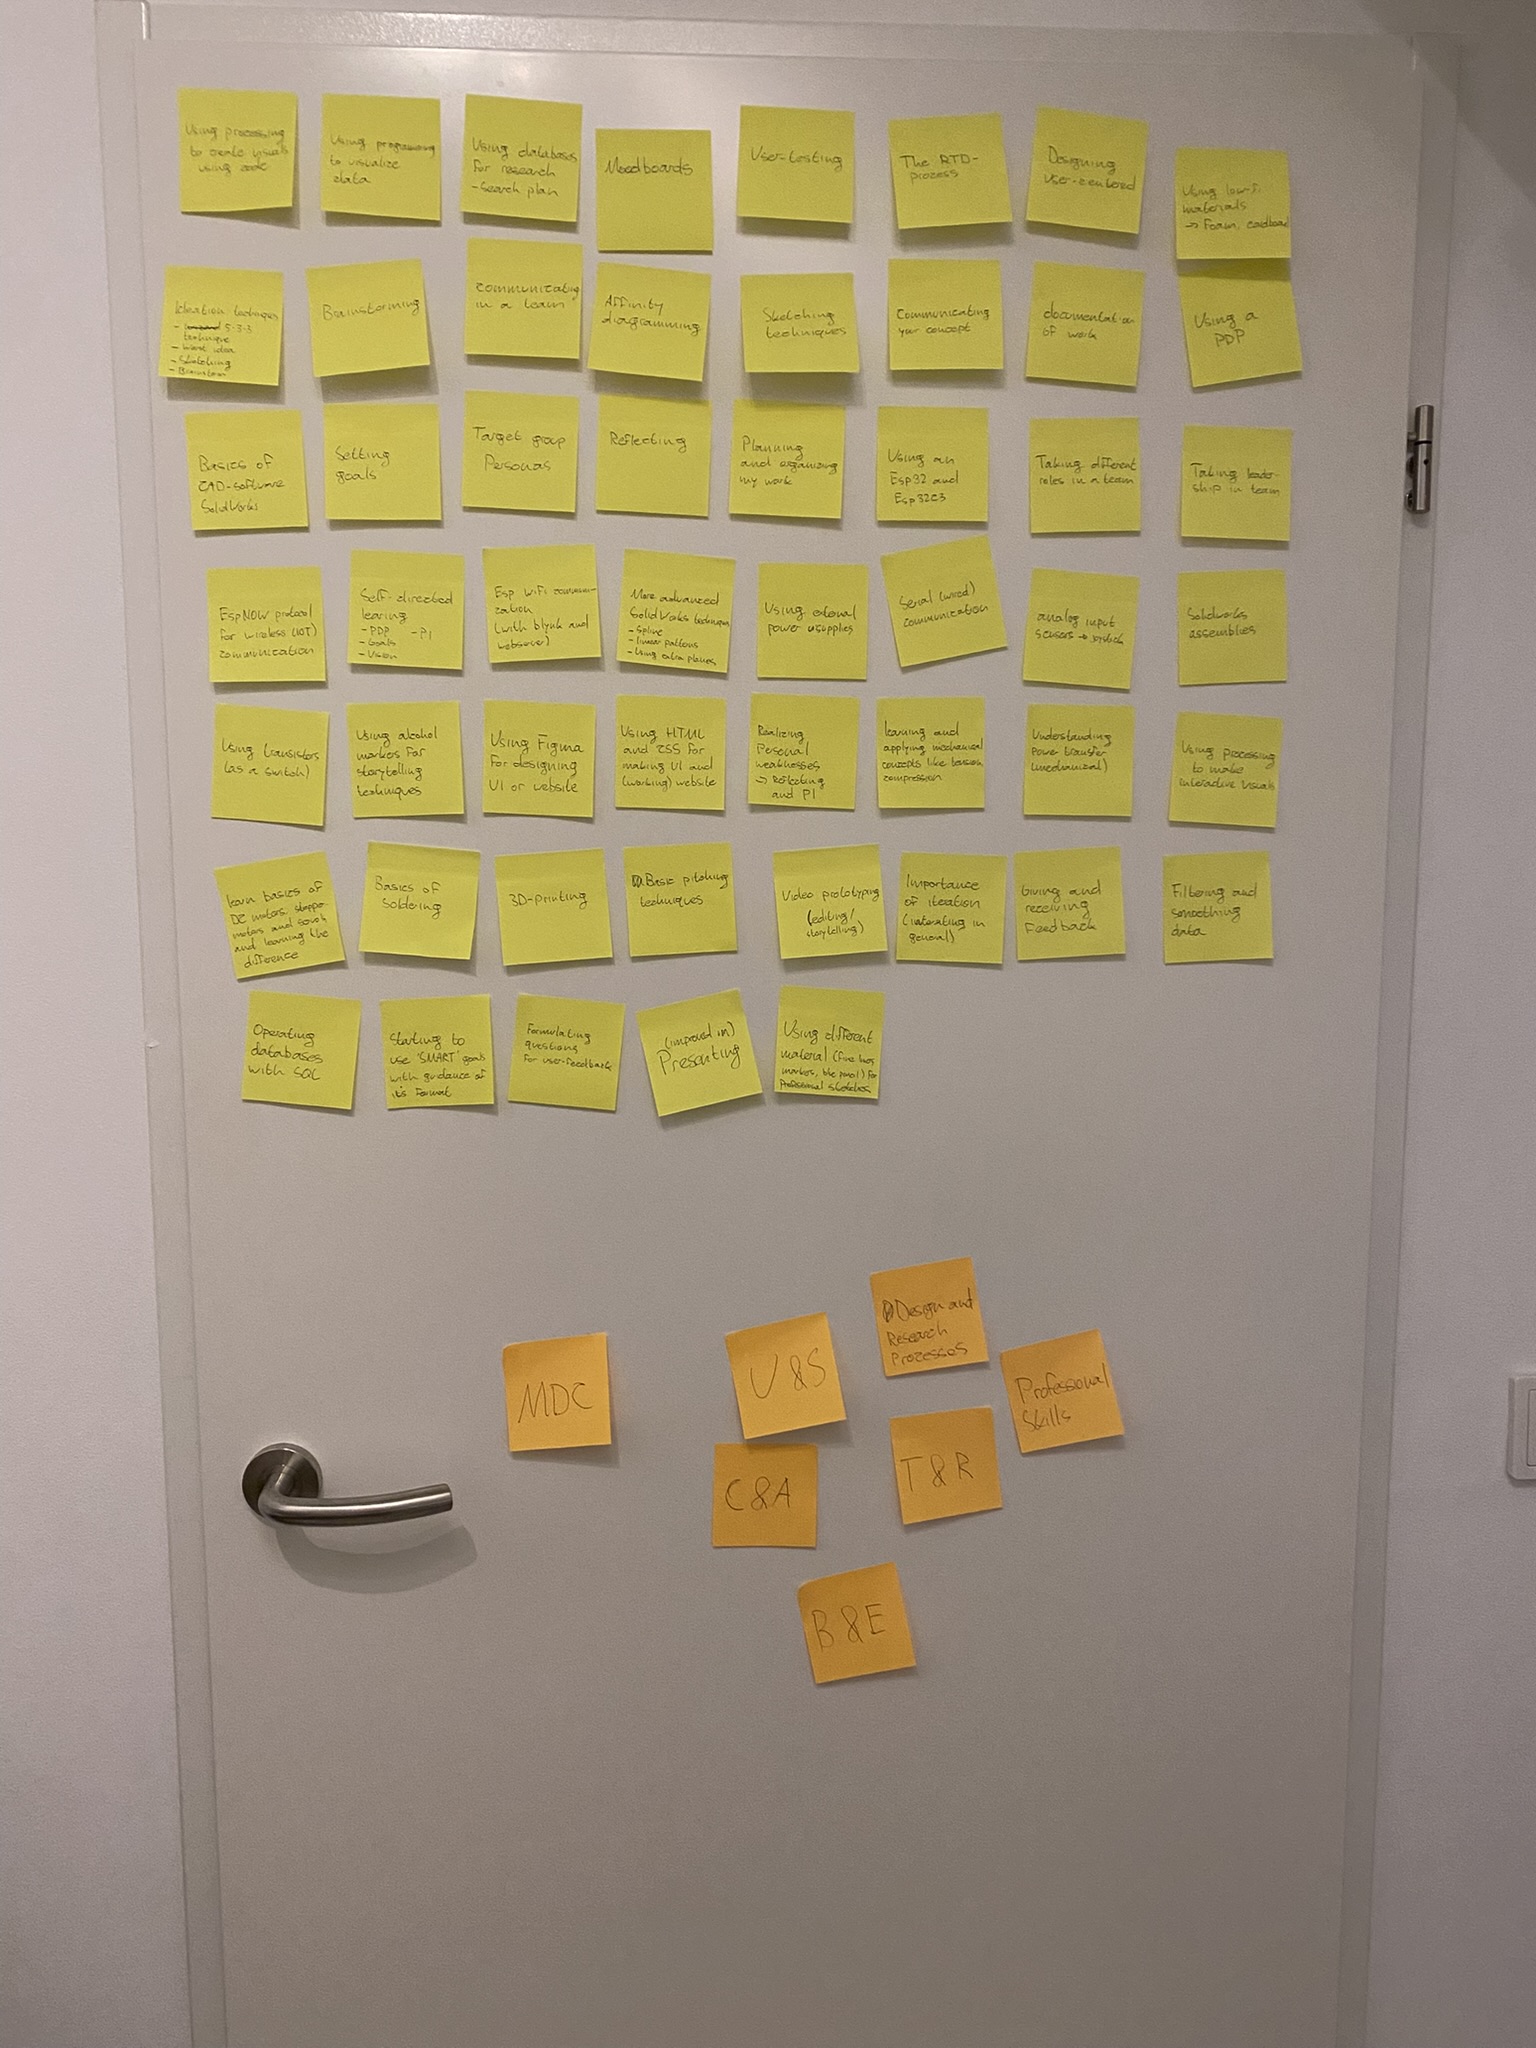 Using processing
to create visuals
using code
Using programming
to visualize
data
Using databases
for research
- Search plan
Moodboards
User-testing
The RTD-
process
Designing
user-centered
Using low-fi
materials
→ Foam, cardboard
Ideation techniques
- 5-3-3
technique
- worst idea
- Sketching
- Brainstorm
Brainstorming
communicating
in a team
Affinity
diagramming
Sketching
techniques
Communicating
your concept
documentation
of work
Using a
PDP
Basics of
CAD-software
SolidWorks
Setting
goals
Target group
Personas
Reflecting
Planning
and organizing
my work
Using an
Esp32 and
Esp32C3
Taking different
roles in a team
Taking leader-
ship in team
EspNOW protocol
for wireless (IOT)
communication
Self-directed
learing
- PDP - PI
- Goals
- Vision
Esp WiFi communi-
cation
(with blynk and
webserver)
More advanced
SolidWorks techniques
- Spline
- linear patterns
- Using extra planes
Using external
power supplies
Serial (wired)
communication
analog input
sensors → joystick
Solidworks
assemblies
Using transistors
(as a switch)
Using alcohol
markers for
storytelling
techniques
Using Figma
for designing
UI or website
Using HTML
and CSS for
making UI and
(working) website
Realizing
Personal
weaknesses
→ Reflecting
and PI
learning and
applying mechanical
concepts like tension,
compression
Understanding
power transfer
(mechanical)
Using processing
to make
interactive visuals
learn basics of
DC motors, stepper
motors and
and learning the
difference
Basics of
soldering
3D-printing
Basic pitching
techniques
Video prototyping
(editing/
storytelling)
Importance
of iteration
(iaterating in
general)
Giving and
receiving
Feedback
Filtering and
smoothing
data
Operating
databases
with SQL
Starting to
use 'SMART' goals
with guidance of
it's format
Formulating
questions
for user-feedback
(improved in)
Presenting
Using different
material (fine liner,
markers, ) for
Professional sketches
Design and
Research
Processes
MDC
U&S
Professional
Skills
C&A
T&R
B&E